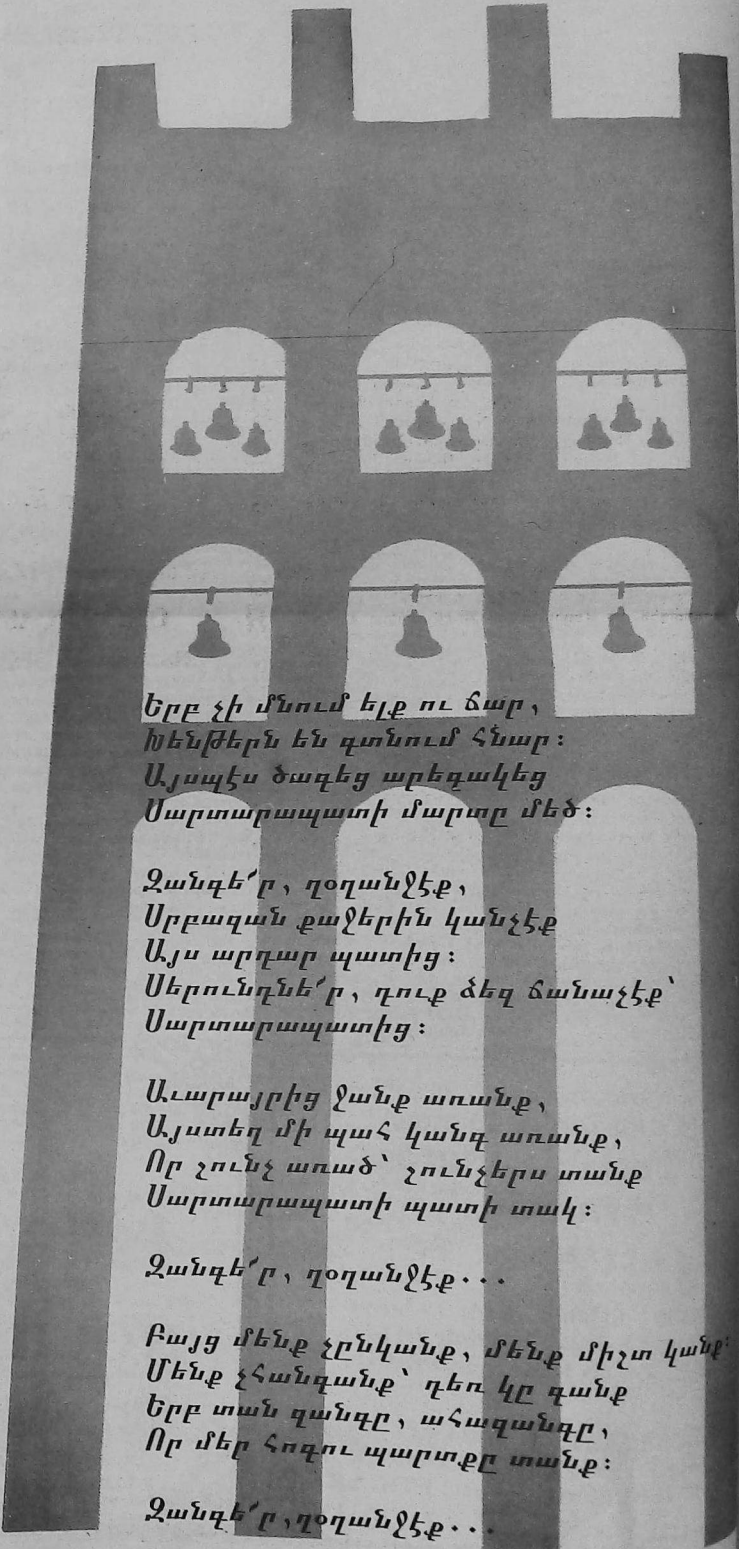 Երբ չի մնում ելք ու ճար,
Խենթերն են գտնում հնար։
Այսպէս ծագեց արեգակեց
Սարտարապատի մարտը մեծ։

Զանգե՛ր, ղօղանջէք,
Սրբազան քաջերին կանչէք
Այս արդար պատից։
Սերունդնե՛ր, դուք ձեզ ճանաչէք՝
Սարտարապատից։

Աւարայրից ջանք առանք,
Այստեղ մի պահ կանգ առանք,
Որ շունչ առած՝ շունչերս տանք
Սարտարապատի պատի տակ։

Զանգե՛ր, ղօղանջէք...

Բայց մենք չընկանք, մենք միշտ կանք։
Մենք չհանգանք՝ դեռ կը գանք
Երբ տան զանգը, ահազանգը,
Որ մեր հոգու պարտքը տանք։

Զանգե՛ր, ղօղանջէք...